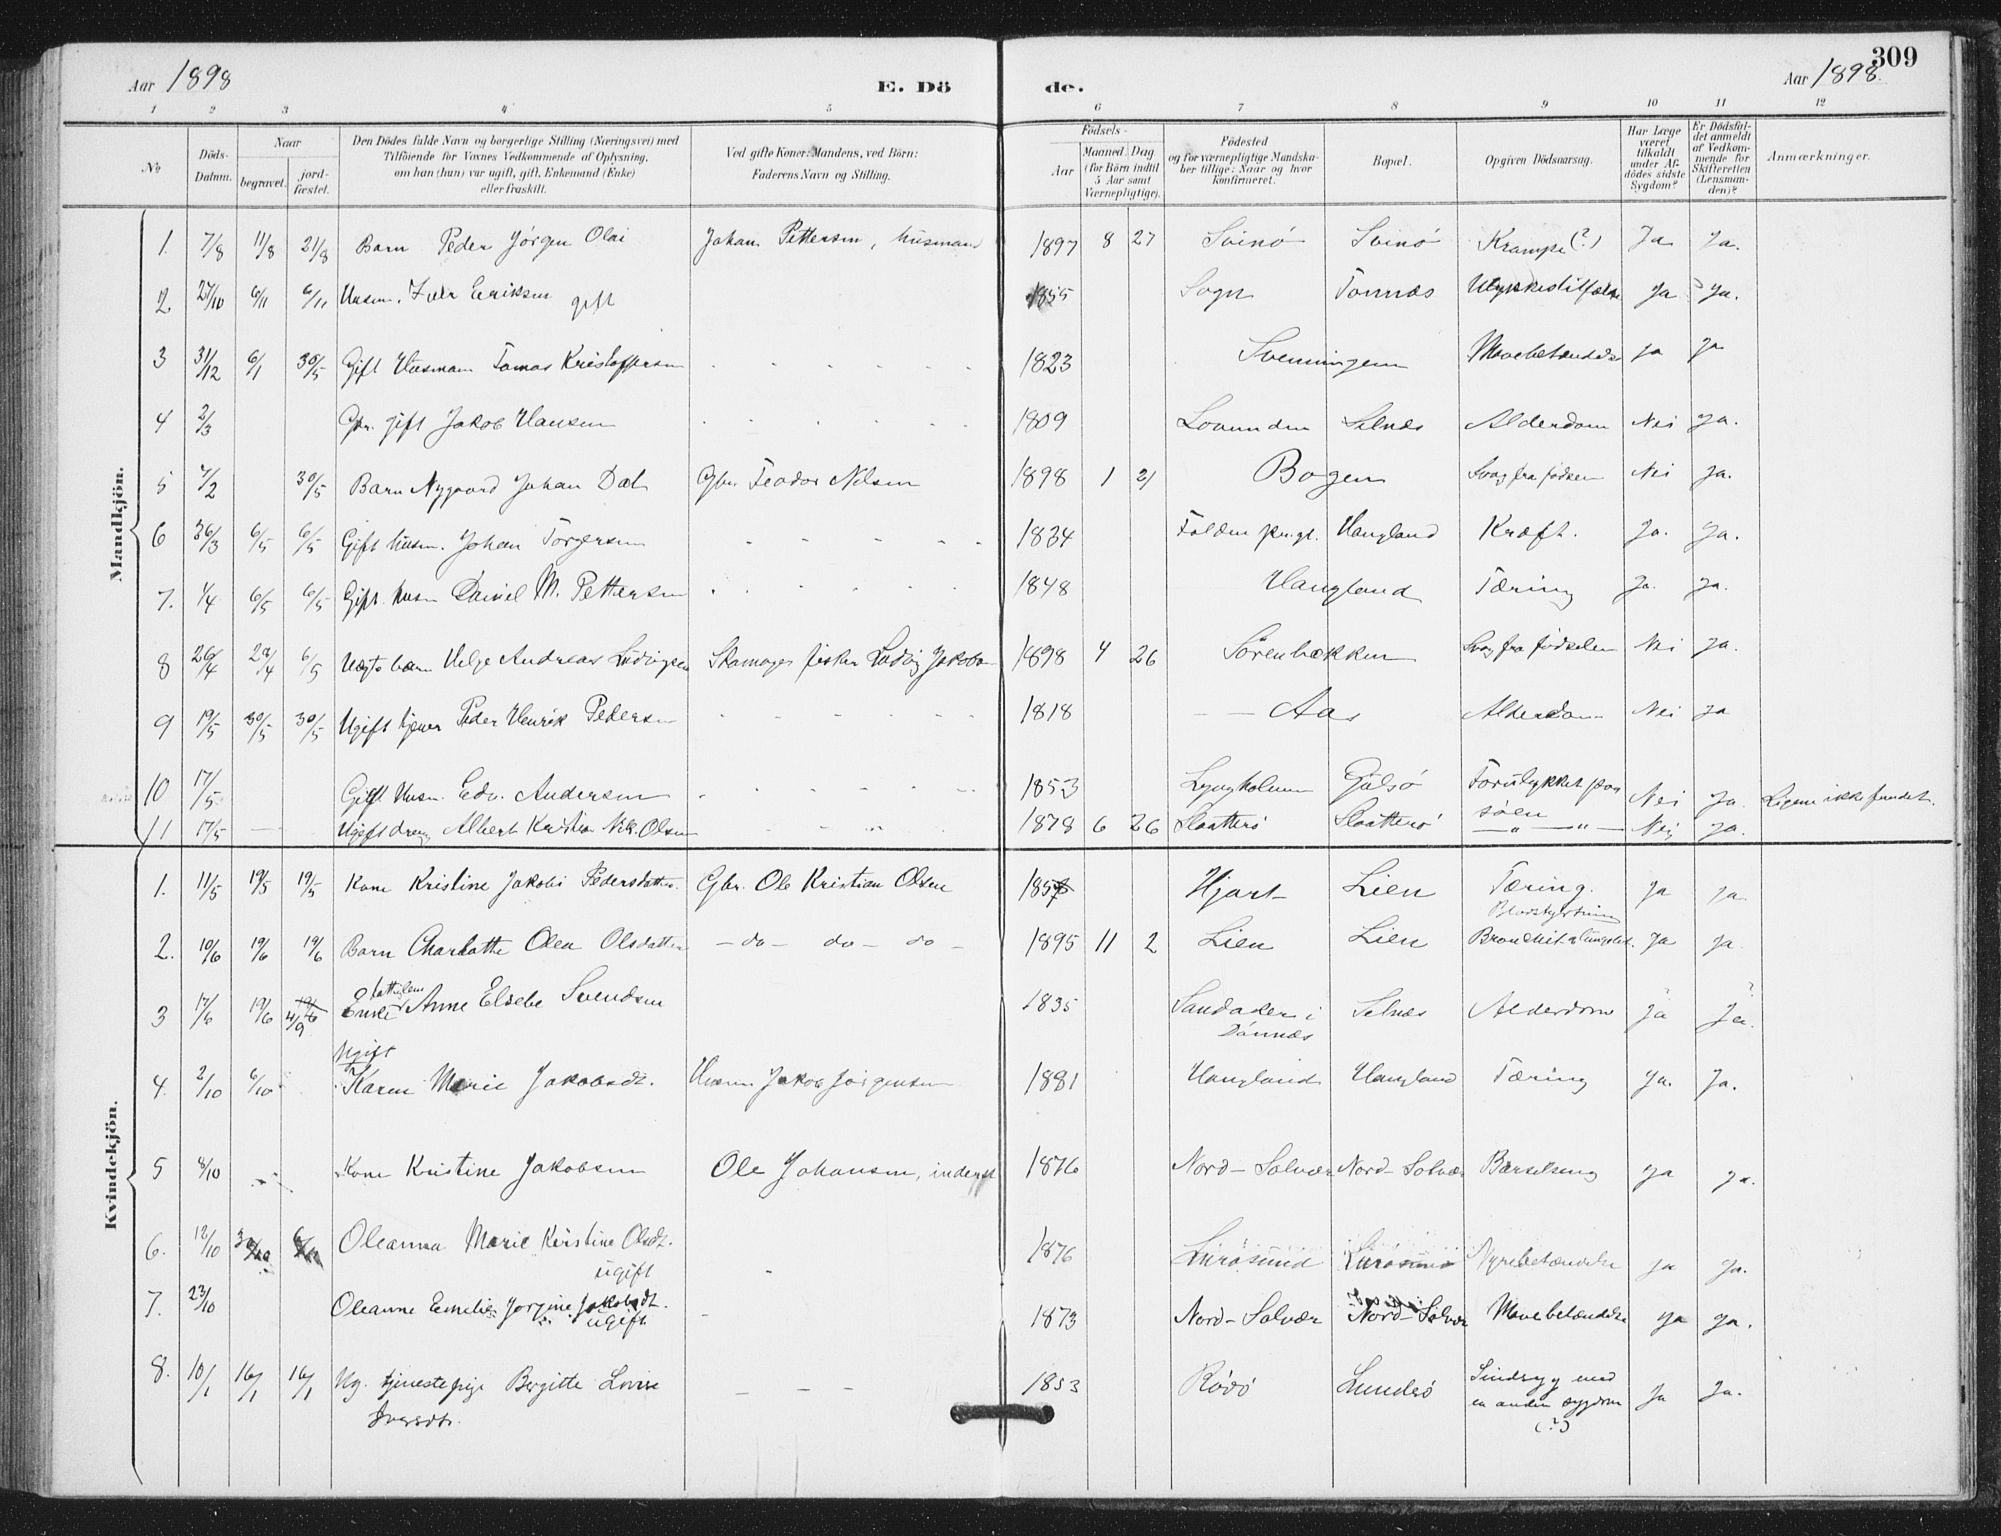 309
Aar 1898
E. Dö
de.
Aar 1898.
1 2 3 4 5 6 7 8 9 10 11 12
No
Döds-Datum.
Naar
begravet.
jord-fæstet.
Den Dödes fulde Navn og borgerlige Stilling (Næringsvei) med
Tilföiende for Voxnes Vedkommende af Oplysning,
om han (hun) var ugift, gift, Enkemand (Enke)
eller fraskilt.
Ved gifte Koner: Mandens, ved Börn:
Faderens Navn og Stilling.
Födsels-
Aar
Maaned Dag
(for Börn indtil
5 Aar samt
Værnepligtige).
Födested
og for værnepligtige Mandska-
ber tillige: Naar og hvor
konfirmeret.
Bopæl.
Opgiven Dödsaarsag.
Har Læge
været
tilkaldt
under Af-
dödes sidste
Sygdom?
Er Dödsfal-
det anmeldt
af Vedkom-
mende for
Skifteretten
(Lensman-
den)?
Anmærkninger.
Mandkjön.
1. 7/8 11/8 21/8 Barn Peder Jörgen Olai Johan Pettersen, husmand 1897 8 27 Svinö Svinö Krampe (?) Ja Ja.
2. 27/10 6/11 6/11 Husm. Iver Eriksen gift 1855 Sogn Tonnes Ulykkestilfælde Ja Ja.
3 31/12 6/1 30/5 Gift Husmann Tomas Kristoffersen 1823 Svenningen Mavebetændelse Ja Ja
4 2/3 Gbr. gift Jakob Hansen 1809 Lovunden Selnes Alderdom Nei Ja.
5 7/2 30/5 Barn Nygaard Johan Dal Gbr. Teodor Nilsen 1898 1 21 Bogen Svag fra fødsen Nei Ja.
6 26/3 6/5 6/5 Gift husm. Johan Torgersen 1834 Folden prgj. Haugland Kræft. Ja. Ja.
7. 1/4 6/5 6/5 Gift. husm Daniel M. Pettersen 1848 Haugland Tæring Ja. Ja.
8 26/4 27/4 6/5 Ægte barn Helge Andreas Ludvigsen fisker Ludvig Jakobs 1898 4 26 Sörenbækken Svag fra fødselen Nei Ja.
9 19/5 30/5 30/5 Ugift tjener Peder Henrik Pedersen 1818 — — Aas Alderdom Nei Ja
10 17/5 Gift Husm. Edv. Andersen 1853 Lyngholmen Gjelsö Forulykket paa søen Nei Ja. Ligene ikke fundet.
11 17/5 — Ugift dreng Albert Kristian Nik. Olsen 1878 6 26 Slaatterö Slaatterö —"— —"— Nei Ja.
Kvindekjön.
1. 11/5 19/5 19/5 Kone Kristine Jakobi Pedersdatter. Gbr. Ole Kristian Olsen 1857 Hjart- Lien Tæring. Blodstyrtning Ja Ja.
2. 10/6 19/6 19/6 Barn Charlotte Olea Olsdatter — do — do — do — 1895 11 2 Lien Lien Bronchit. Ja Ja.
3 17/6 19/6 19/6 4/9 Enke Anne Elsebe Svendsen 1835 Sandaker i Dönnes Selnæs Alderdom Ja Ja.
4. 2/10 6/10 Ugift Karen Marie Jakobsdt. Husm. Jakob Jörgensen 1881 Haugland Haugland Tæring Ja. Ja.
5 8/10 Kone Kristine Jakobsen Ole Johansen, inderst 1876 Nord-Solvær Nord-Solvær Barselseng Ja Ja.
6. 12/10 30/10 Oleanna Marie Kristine Olsdt. ugift 1876 Lurösund Lurösund Nyrebetændelse Ja Ja.
7. 23/10 Oleanne Emelie Jorgine Jakobsdt. ugift 1873 Nord-Solvær Nord-Solvær Mavebetændelse Ja Ja.
8. 10/1 16/1 16/1 Ug. tjenestepige Bergitte Lovise Iversdtr. — — — 1853 Rödö Lundsö Sindssyg med en anden sygdom (?) Ja Ja.